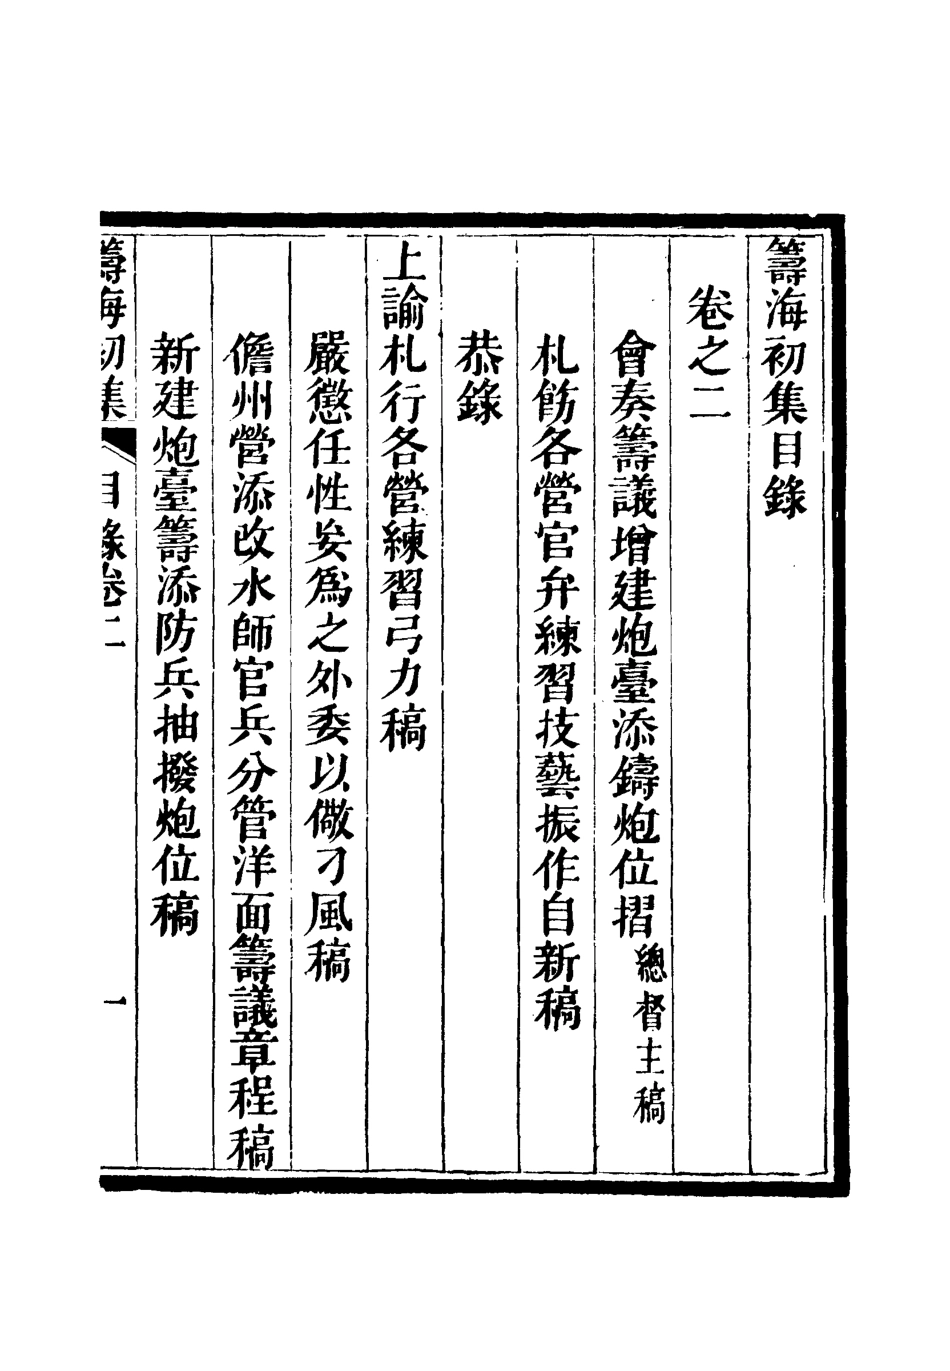 籌海初集目錄
卷之二
會奏籌議增建炮臺添鑄炮位摺總督主稿
札飭各營官弁練習技藝振作自新稿
恭錄
上諭札行各營練習弓力稿
嚴懲任性妄爲之外委以儆刁風稿
儋州營添改水師官兵分管洋面籌議章程稿
新建炮臺籌添防兵抽撥炮位稿
籌海初集 目錄卷二 一